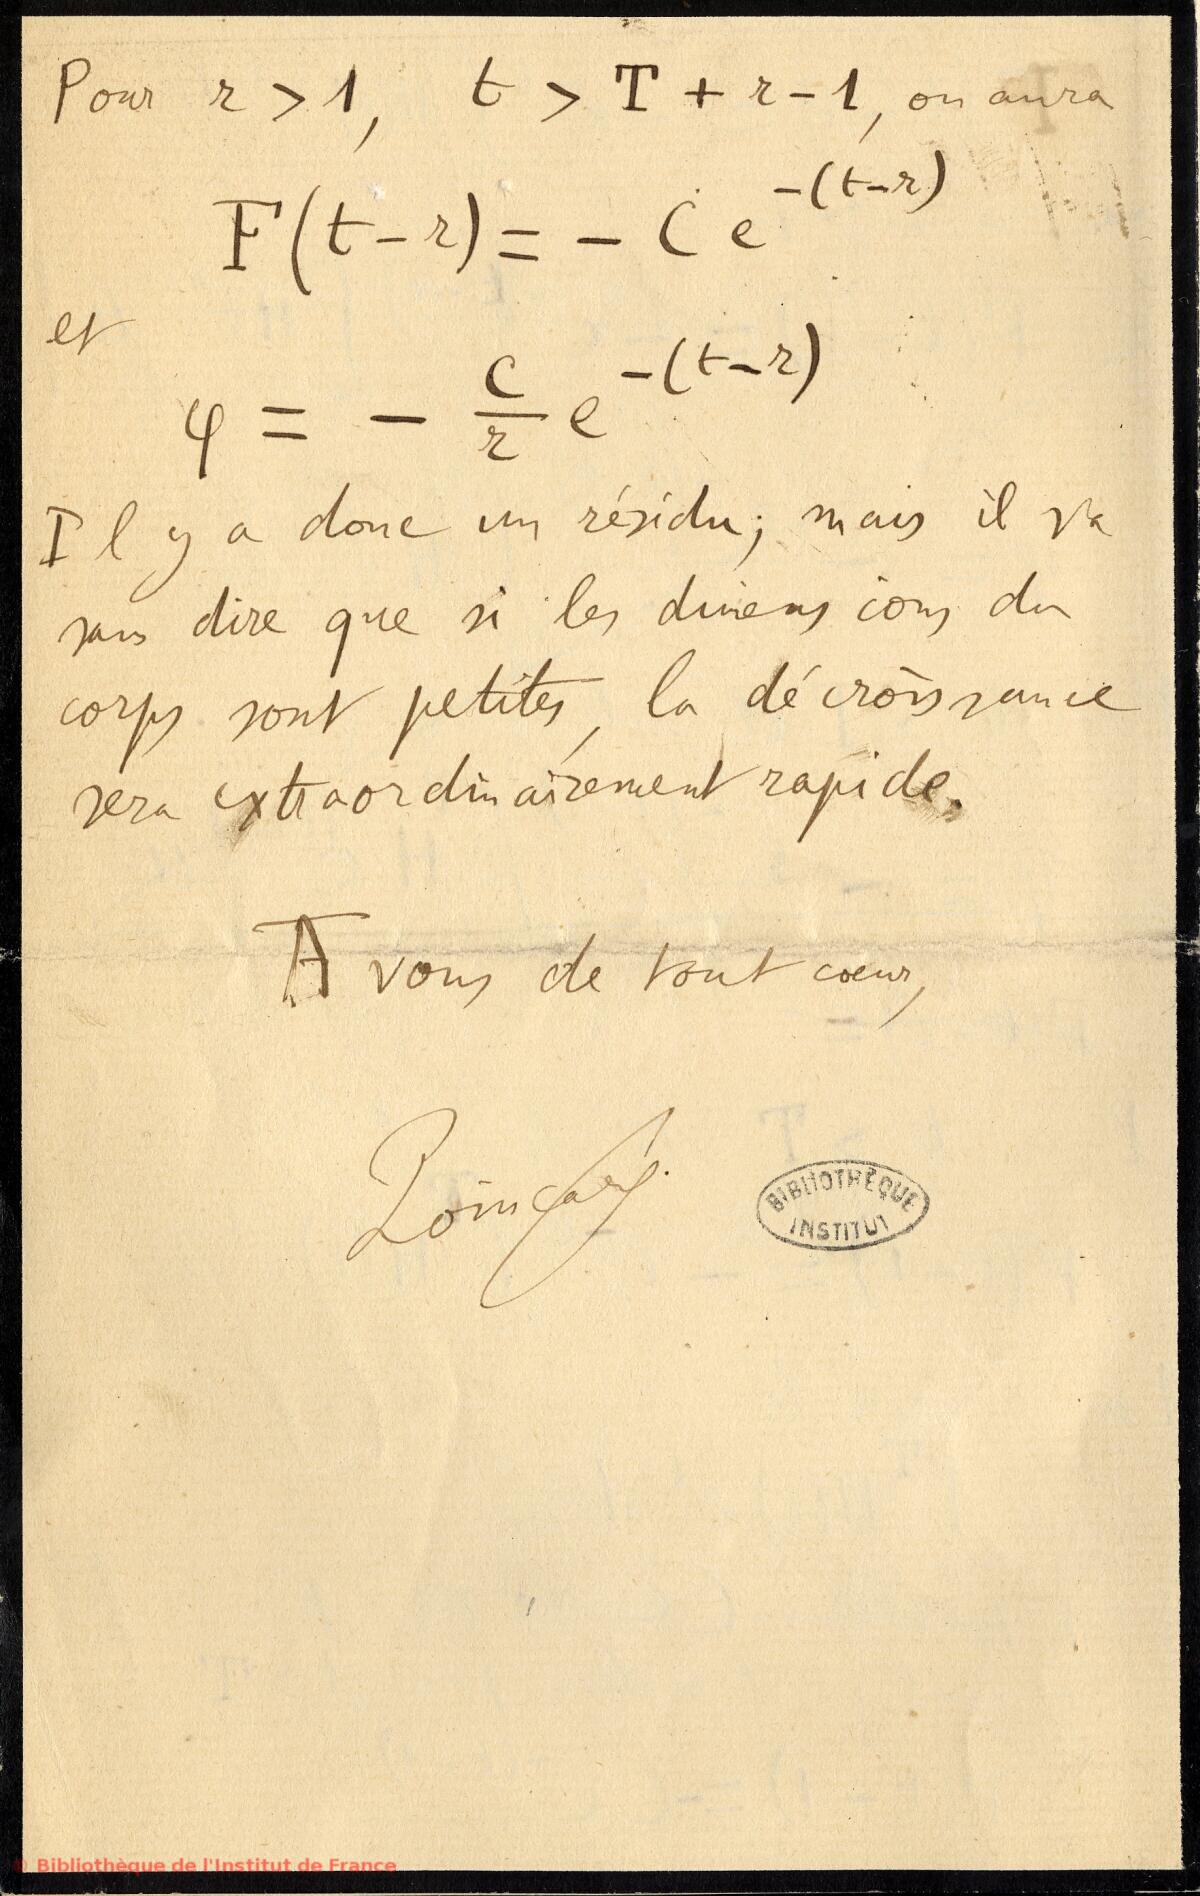 Pour r > 1, t > T + r - 1, on aura
F(t - r) = - C e^{-(t-r)}
et
φ = - \frac{C}{r} e^{-(t-r)}
Il y a donc un résidu; mais il va
sans dire que si les dimensions du
corps sont petites, la décroissance
sera extraordinairement rapide.
A vous de tout cœur,
Poincaré
BIBLIOTHÈQUE
INSTITUT
© Bibliothèque de l'Institut de France